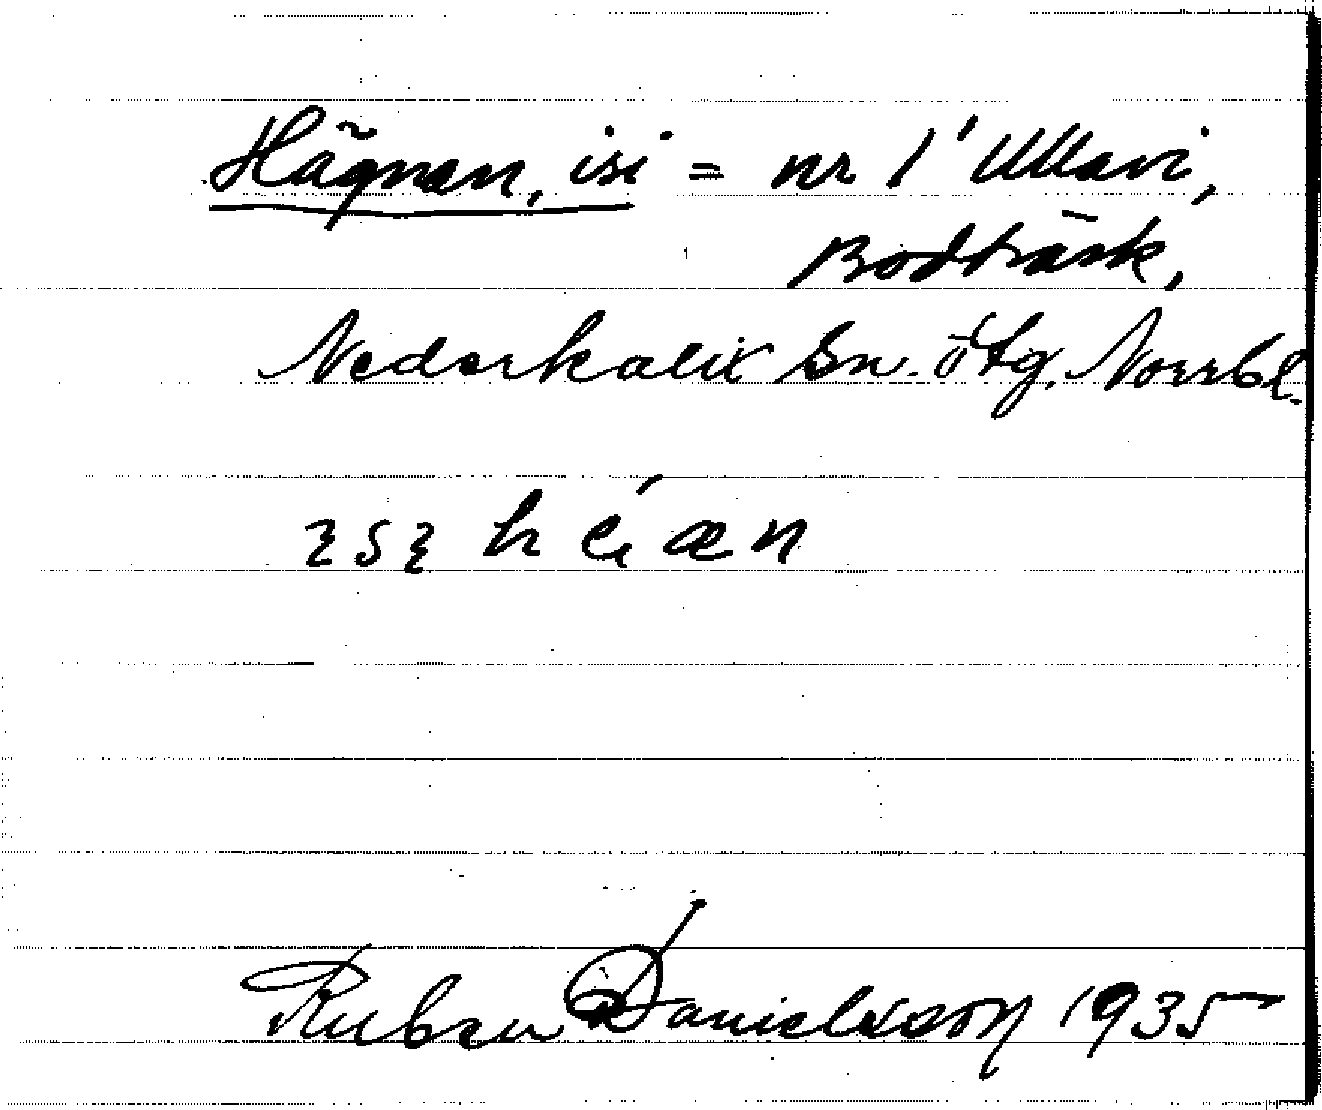 Hägnan, isi = nr 1 i Ullavi,
Bodträsk,
Nederkalix Sn. ötg. Norrbl.
Ruben Danielsson 1935